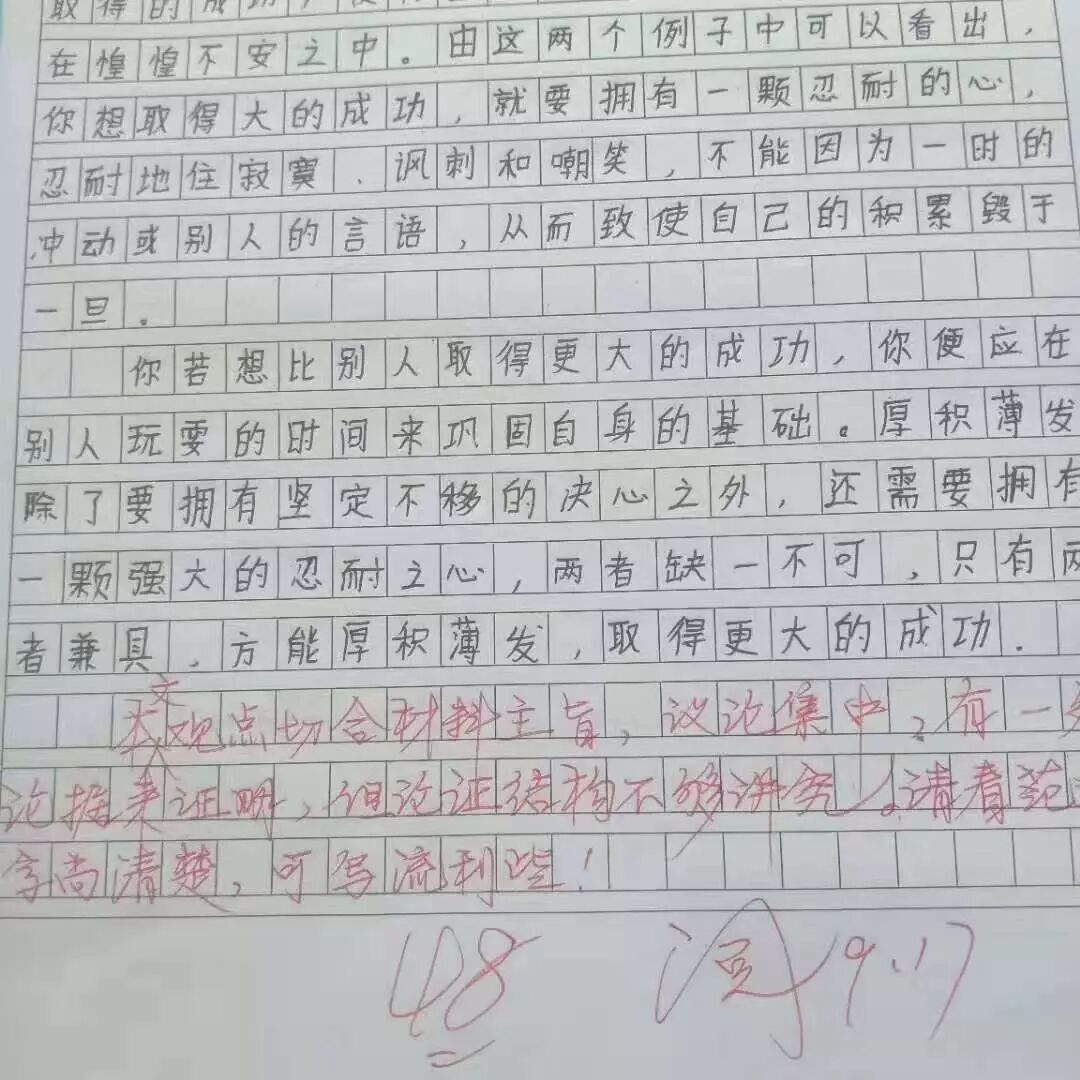 取得的成功,
在惶惶不安之中。由这两个例子中可以看出，
你想取得大的成功，就要拥有一颗忍耐的心，
忍耐地住寂寞、讽刺和嘲笑，不能因为一时的
冲动或别人的言语，从而致使自己的积累毁于
一旦。
你若想比别人取得更大的成功，你便应在
别人玩耍的时间来巩固自身的基础。厚积薄发
除了要拥有坚定不移的决心之外，还需要拥有
一颗强大的忍耐之心，两者缺一不可，只有两
者兼具，方能厚积薄发，取得更大的成功.
文观点切合材料主旨，议论集中，有一
论据来证明，但论证结构不够讲究。请看范
字尚清楚，可写流利些！
48
9.17